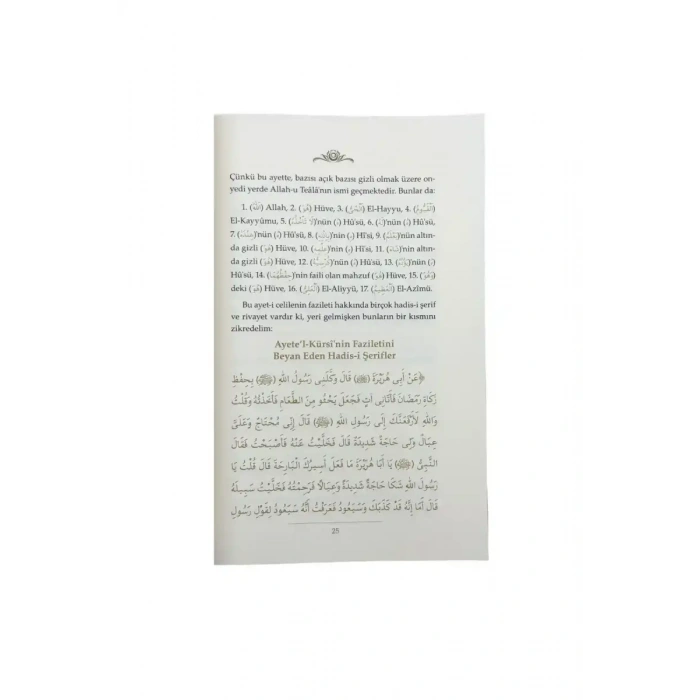 Çünkü bu ayette, bazısı açık bazısı gizli olmak üzere on-
yedi yerde Allah-u Teâlâ'nın ismi geçmektedir. Bunlar da:
1. (اَللّٰهُ) Allah, 2. (هُوَ) Hüve, 3. (اَلْحَيُّ) El-Hayyu, 4. (اَلْقَيُّومُ)
El-Kayyûmu, 5. (لَا تَأْخُذُهُ)'nün (هُ) Hû'sü, 6. (لَهُ)'nün (هُ) Hû'sü,
7. (عِنْدَهُ)'nün (هُ) Hû'sü, 8. (بِإِذْنِهِ)'nin (هِ) Hî'si, 9. (يَعْلَمُ)'nün altın-
da gizli (هُوَ) Hüve, 10. (عِلْمِهِ)'nin (هِ) Hî'si, 11. (شَاءَ)'nin altın-
da gizli (هُوَ) Hüve, 12. (كُرْسِيُّهُ)'nün (هُ) Hû'sü, 13. (يَؤُدُهُ)'nün (هُ)
Hû'sü, 14. (حِفْظُهُمَا)'nin faili olan mahzuf (هُوَ) Hüve, 15. (وَهُوَ)
deki (هُوَ) Hüve, 16. (اَلْعَلِيُّ) El-Aliyyü, 17. (اَلْعَظِيمُ) El-Azîmü.
Bu ayet-i celilenin fazileti hakkında birçok hadis-i şerif
ve rivayet vardır ki, yeri gelmişken bunların bir kısmını
zikredelim:
Ayete'l-Kürsî'nin Faziletini
Beyan Eden Hadis-i Şerifler
﴿عَنْ أَبِي هُرَيْرَةَ (ﷺ) قَالَ وَكَّلَنِي رَسُولُ اللّٰهِ (ﷺ) بِحِفْظِ
زَكَاةِ رَمَضَانَ فَأَتَانِي آتٍ فَجَعَلَ يَحْثُو مِنَ الطَّعَامِ فَأَخَذْتُهُ وَقُلْتُ
وَاللّٰهِ لَأَرْفَعَنَّكَ إِلَى رَسُولِ اللّٰهِ (ﷺ) قَالَ إِنِّي مُحْتَاجٌ وَعَلَيَّ
عِيَالٌ وَلِي حَاجَةٌ شَدِيدَةٌ قَالَ فَخَلَّيْتُ عَنْهُ فَأَصْبَحْتُ فَقَالَ
النَّبِيُّ (ﷺ) يَا أَبَا هُرَيْرَةَ مَا فَعَلَ أَسِيرُكَ الْبَارِحَةَ قَالَ قُلْتُ يَا
رَسُولَ اللّٰهِ شَكَا حَاجَةً شَدِيدَةً وَعِيَالًا فَرَحِمْتُهُ فَخَلَّيْتُ سَبِيلَهُ
قَالَ أَمَا إِنَّهُ قَدْ كَذَبَكَ وَسَيَعُودُ فَعَرَفْتُ أَنَّهُ سَيَعُودُ لِقَوْلِ رَسُولِ
25